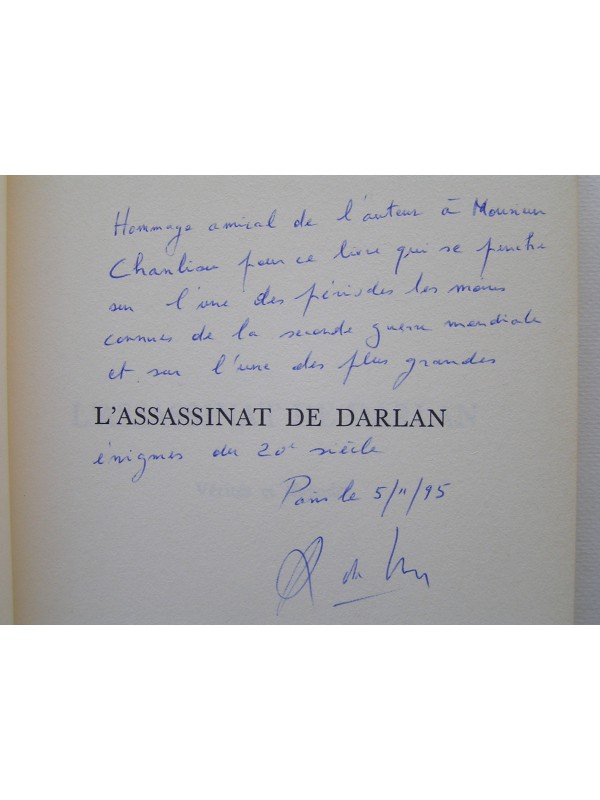 Hommage amical de l'auteur à Monsieur
pour ce livre qui se penche
sur l'une des périodes les moins
connues de la seconde guerre mondiale
et sur l'une des plus grandes
L'ASSASSINAT DE DARLAN
énigmes du 20e siècle
Paris le 5/11/95